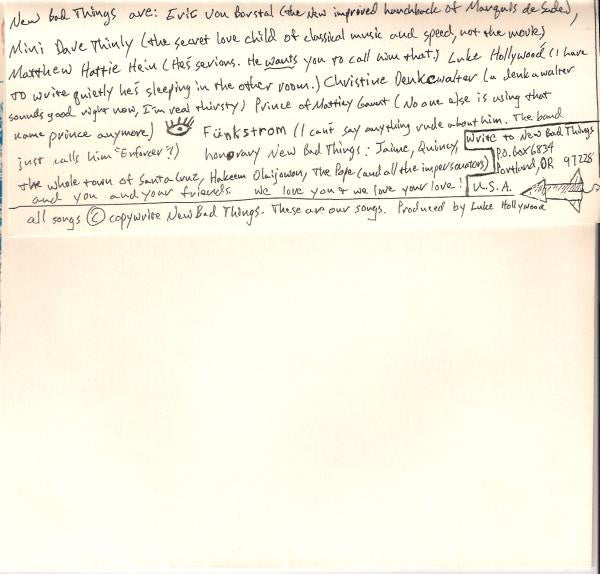 New Bad Things are: Eric von Borstal (the new improved hunchback of Marquis de Sade),
Mini Dave Thinly (the secret love child of classical music and speed, not the movie)
Matthew Hattie Hein (He's serious. He wants you to call him that.) Luke Hollywood (I have
to write quietly he's sleeping in the other room.) Christine Denkewalter (a denkawalter
sounds good right now, I'm real thirsty) Prince of Mattley Gaunt (No one else is using that
name prince anymore) Fünkstrom (I can't say anything rude about him. The band
just calls him "Enforcer"!) honorary New Bad Things: Jaime, Quincy,
the whole town of Santa Cruz, Hakeem Olaijowon, The Pope (and all the impersonators)
and you and your friends. We love you & we love your love!
Write to New Bad Things
P.O. Box 6834
Portland, OR 97228
U.S.A.
all songs © copywrite New Bad Things. These are our songs. Produced by Luke Hollywood